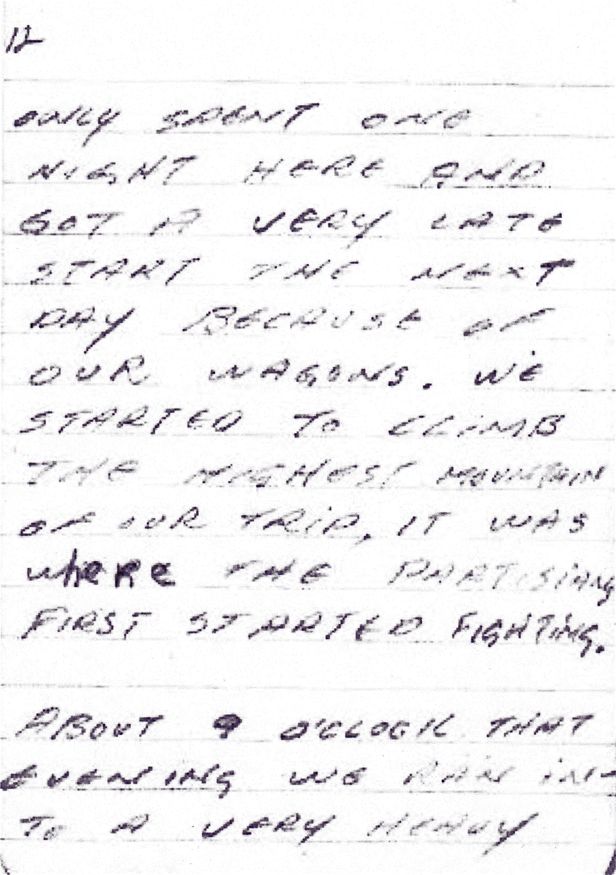 12
ONLY SPENT ONE
NIGHT HERE AND
GOT A VERY LATE
START THE NEXT
DAY BECAUSE OF
OUR WAGONS. WE
STARTED TO CLIMB
THE HIGHEST MOUNTAIN
OF OUR TRIP, IT WAS
WHERE THE PARTISIANS
FIRST STARTED FIGHTING.
ABOUT 9 O'CLOCK THAT
EVENING WE RAN IN-
TO A VERY HEAVY